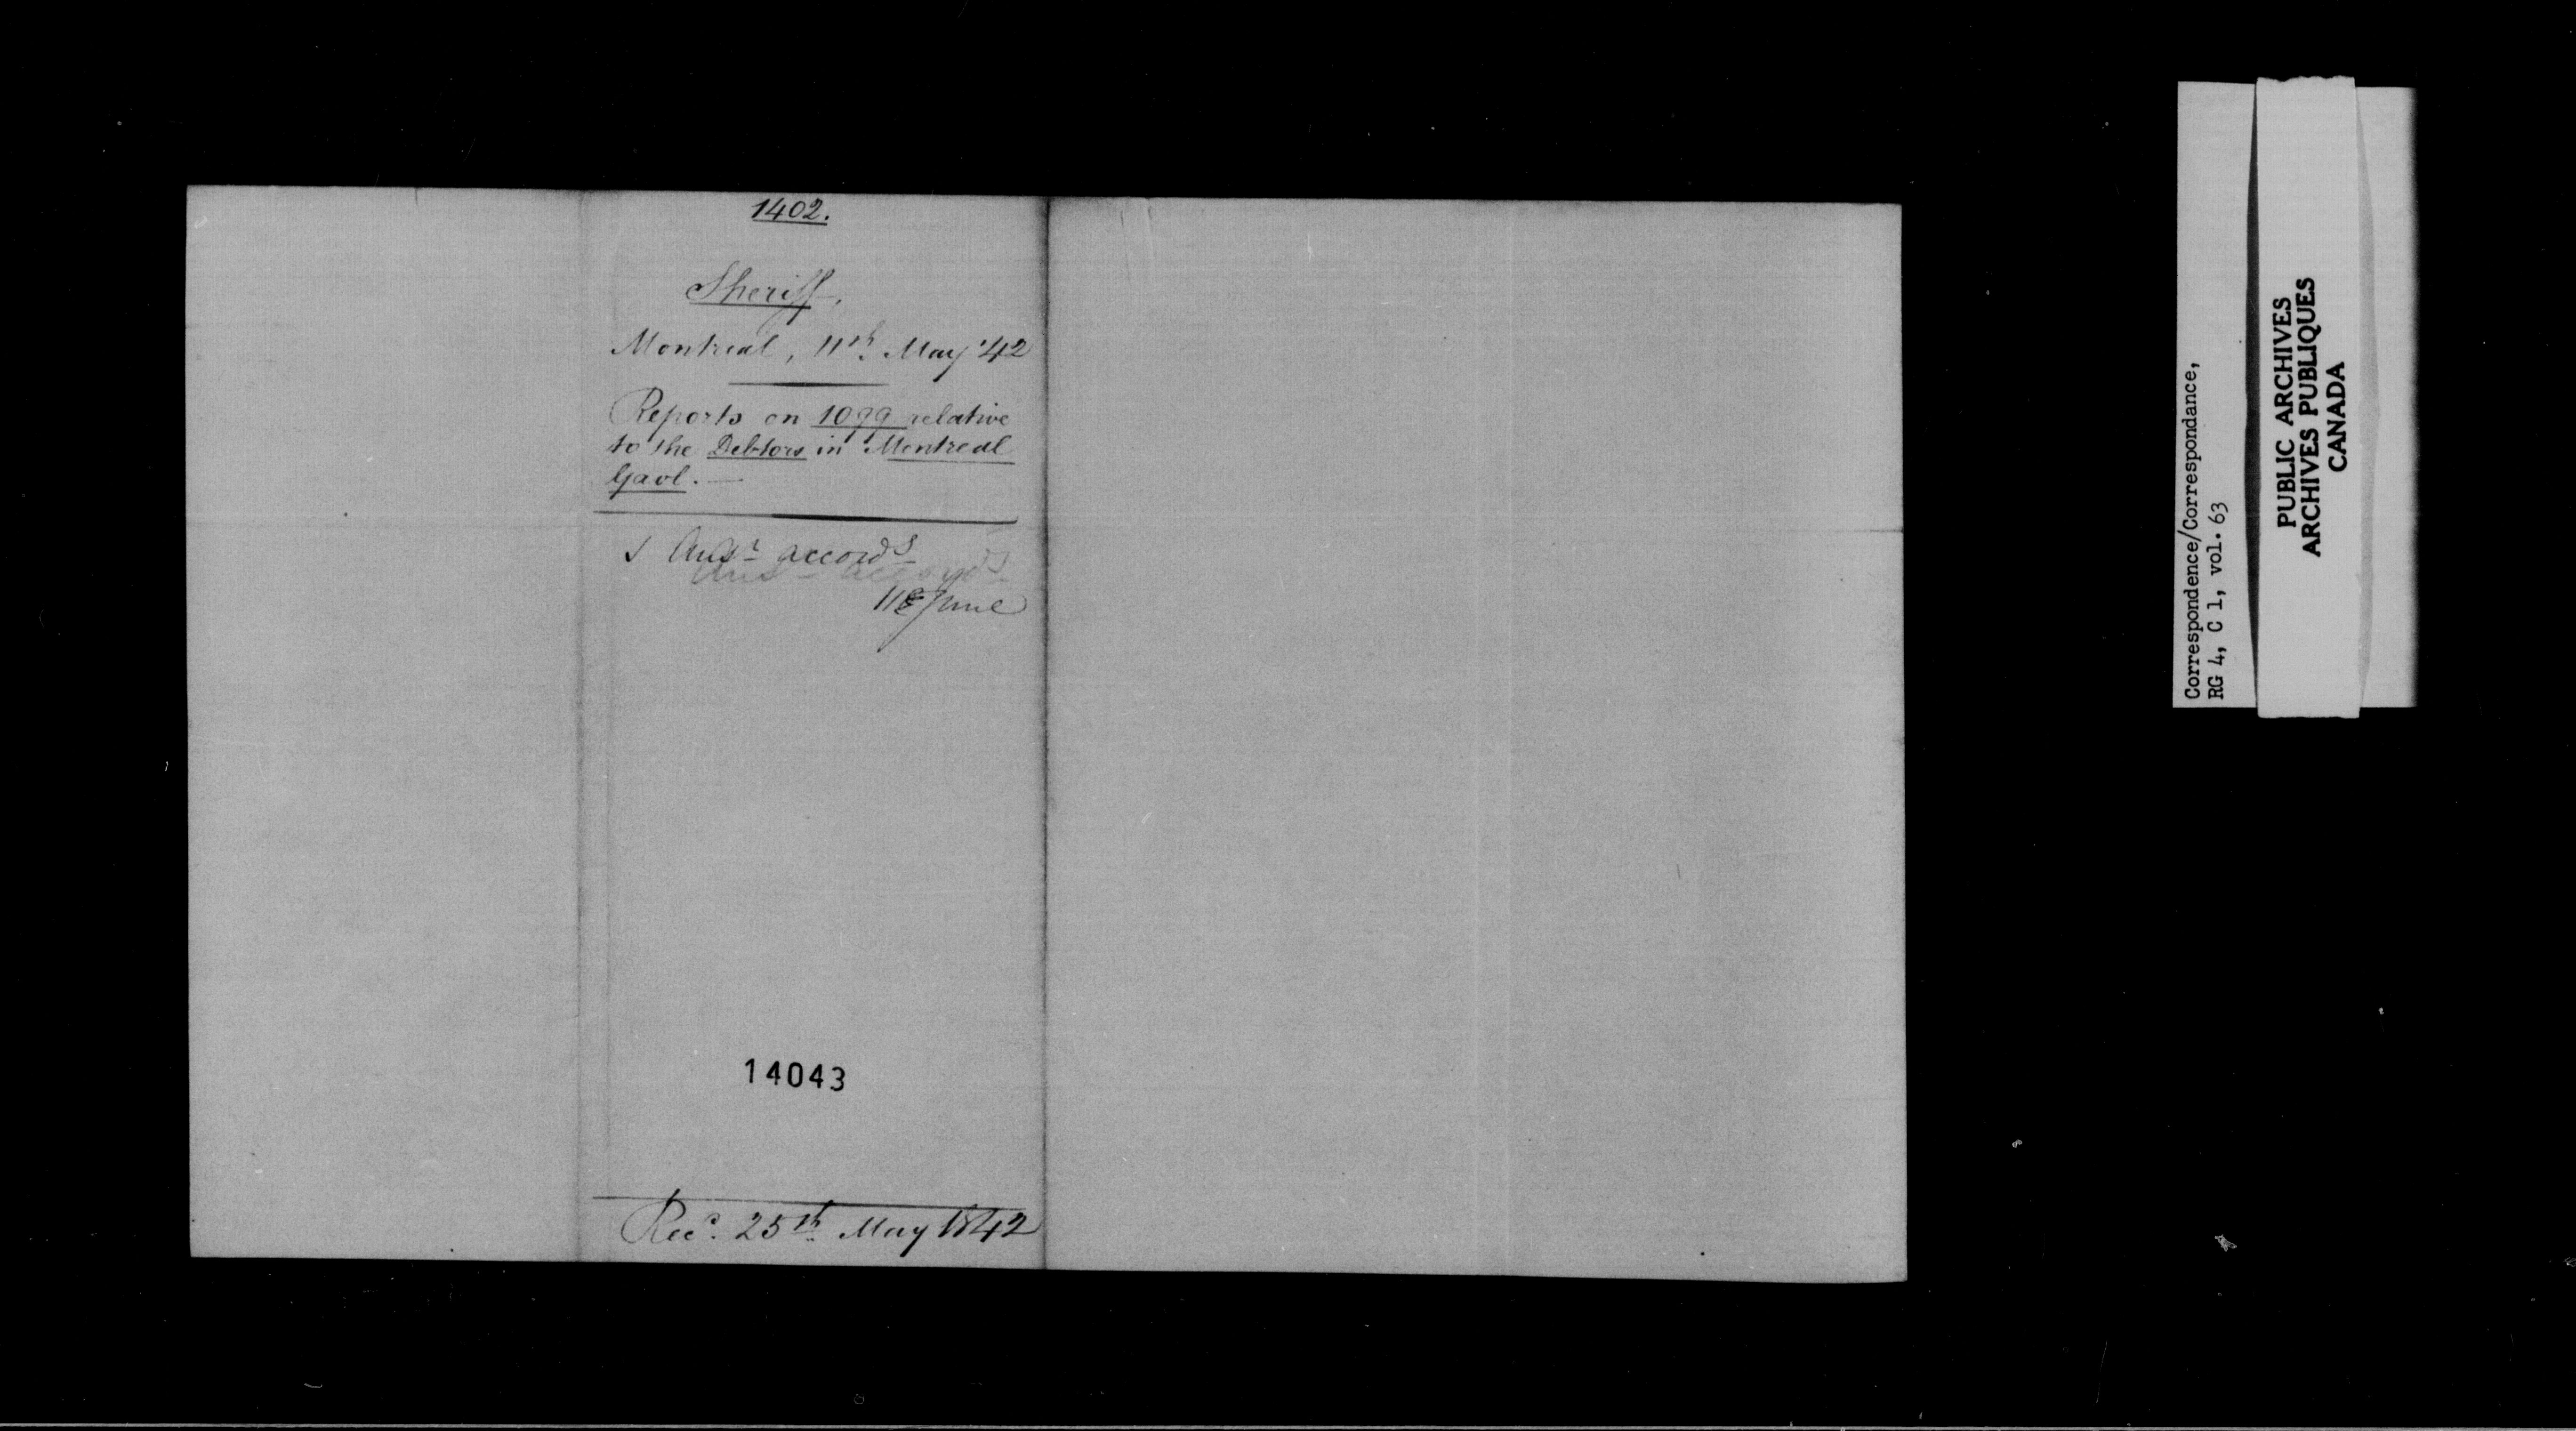 1402.
Sheriff.
Montreal, 11th May '42
Reports on 1099 relative
to the Debtors in Montreal
Gaol. —
Ansr accords
Ansr accords
11 June
14043
Recd. 25th May 1842
Correspondence/Correspondance,
RG 4, C 1, vol. 63
PUBLIC ARCHIVES
ARCHIVES PUBLIQUES
CANADA